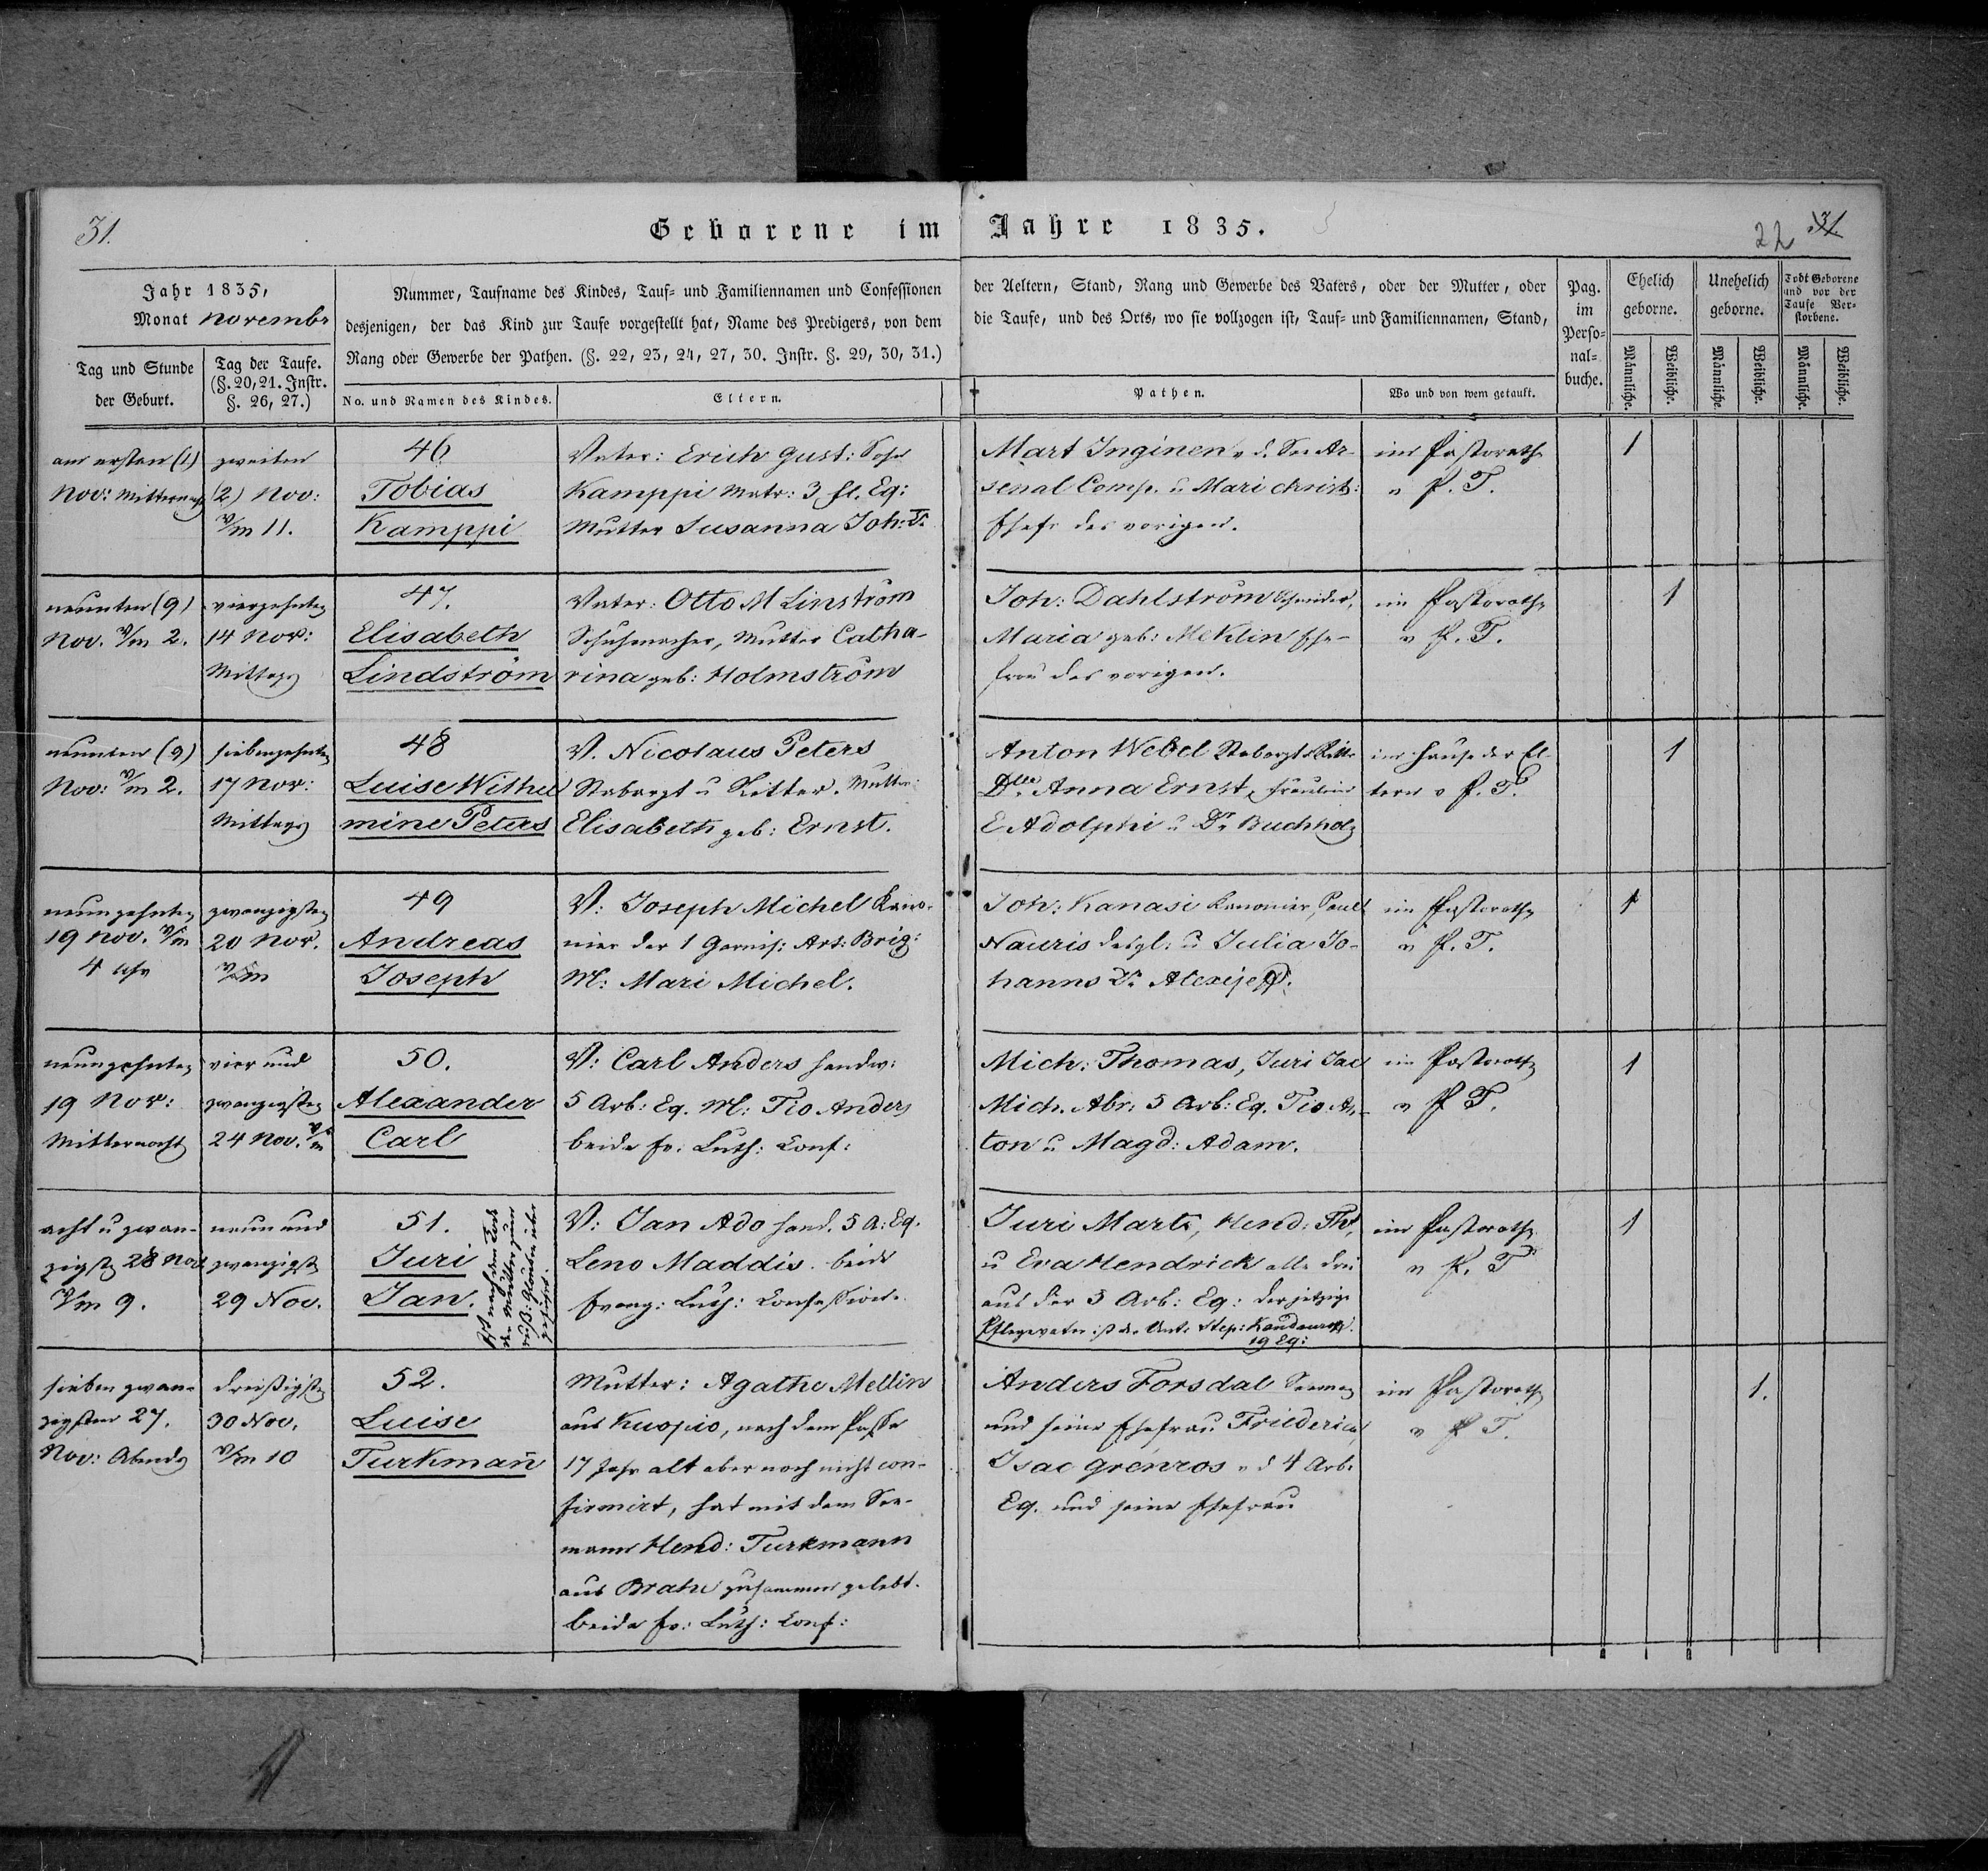 31.
Geborene im Jahre 1835.
22 31.
Jahr 1835,
Monat Novembr
Tag und Stunde
der Geburt.
Tag der Taufe.
(§. 20, 21. Instr.
§. 26, 27.)
Nummer, Taufname des Kindes, Tauf- und Familiennamen und Confessionen
desjenigen, der das Kind zur Taufe vorgestellt hat, Name des Predigers, von dem
Rang oder Gewerbe der Pathen. (§. 22, 23, 24, 27, 30. Instr. §. 29, 30, 31.)
No. und Namen des Kindes.
Eltern.
der Aeltern, Stand, Rang und Gewerbe des Vaters, oder der Mutter, oder
die Taufe, und des Orts, wo sie vollzogen ist, Tauf- und Familiennamen, Stand,
Pathen.
Wo und von wem getauft.
Pag.
im
Perso-
nal-
buche.
Ehelich
geborne.
Unehelich
geborne.
Todt Geborene
und vor der
Taufe Ver-
storbene.
Männliche.
Weibliche.
Männliche.
Weibliche.
Männliche.
Weibliche.
am ersten (1)
Nov: Mitternacht
zweiten
(2) Nov:
V/m 11.
46
Tobias
Kamppi
Vater: Erich Gust: Sohn
Kamppi Matr: 3 fl. Eq:
Mutter Susanna Joh: Tr
Mart Inginen v d. See Ar-
senal Comp. u Mari Christ:
Ehefr des vorigen.
im Pastorath
v P. T.
1
neunten (9)
Nov. V/m 2.
vierzehnten
14 Nov:
Mittags
47.
Elisabeth
Lindström
Vater: Otto M Linström
Schuhmacher, Mutter Catha-
rina geb: Holmström
Joh: Dahlström Schneider,
Maria geb: Meklin Ehe-
frau des vorigen.
im Pastorath
v P. T.
1
neunten (9)
Nov: V/m 2.
siebenzehnten
17 Nov:
Mittags
48
Luise Wilhel
mine Peters
V. Nicolaus Peters
Stabarzt u Ritter. Mutter:
Elisabeth geb: Ernst.
Anton Webel Stabarzt u Ritter
Dlle Anna Ernst, Fräulein
E Adolphi u Dr Buchholz
im Hause der El-
tern v P. T.
1
neunzehnten
19 Nov. V/m
4 Uhr
zwanzigsten
20 Nov.
V/m
49
Andreas
Joseph
V: Joseph Michel Kano-
nier der 1 Garnis: Art: Brig:
M: Mari Michel.
Joh: Kanasi Kanonier, Paul
Nauris desgl: u Julia Jo-
hanns Tr Alexijeff.
im Pastorath
v P. T.
1
neunzehnten
19 Nov:
Mitternacht
vier und
zwanzigsten
24 Nov. V/m
50.
Alexander
Carl
V: Carl Anders Handw:
5 Arb: Eq. M: Tio Anders
beide Ev. Luth: Conf:
Mich: Thomas, Juri Jac
Mich. Abr: 5 Arb: Eq. Tio An-
ton u Magd: Adam.
im Pastorath
v P T.
1
acht u zwan-
zigst 28 Nov
V/m 9.
neun und
zwanzigst
29 Nov.
51.
Juri
Jan.
Ist nach dem Tode
der Mutter zum
russ: Glauben über
geführt.
V: Jan Ado Hand. 5 A: Eq.
Leno Maddis. beide
Evang: Luth: Confession.
Juri Marti, Hend: Th,
u Eva Hendrick alle drei
aus der 5 Arb: Eq: der jetzige
Pflegevater ist der Unt: Step: Kandauroff.
19 Eq:
im Pastorath
v P. T
1
sieben zwan-
zigsten 27.
Nov: Abends
dreißigsten
30 Nov.
V/m 10
52.
Luise
Turkman
Mutter: Agathe Mellin
aus Kuopio, nach dem Passe
17 Jahr alt aber noch nicht con-
firmirt, hat mit dem See-
mann Hend: Turkmann
aus Brahe zusammen gelebt.
beide Ev: Luth: Conf:
Anders Forsdal
und seine Ehefrau Friederica,
Isac Grönros v d 4 Arb.
Eq. und seine Ehefrau
im Pastorath
v P T.
1.